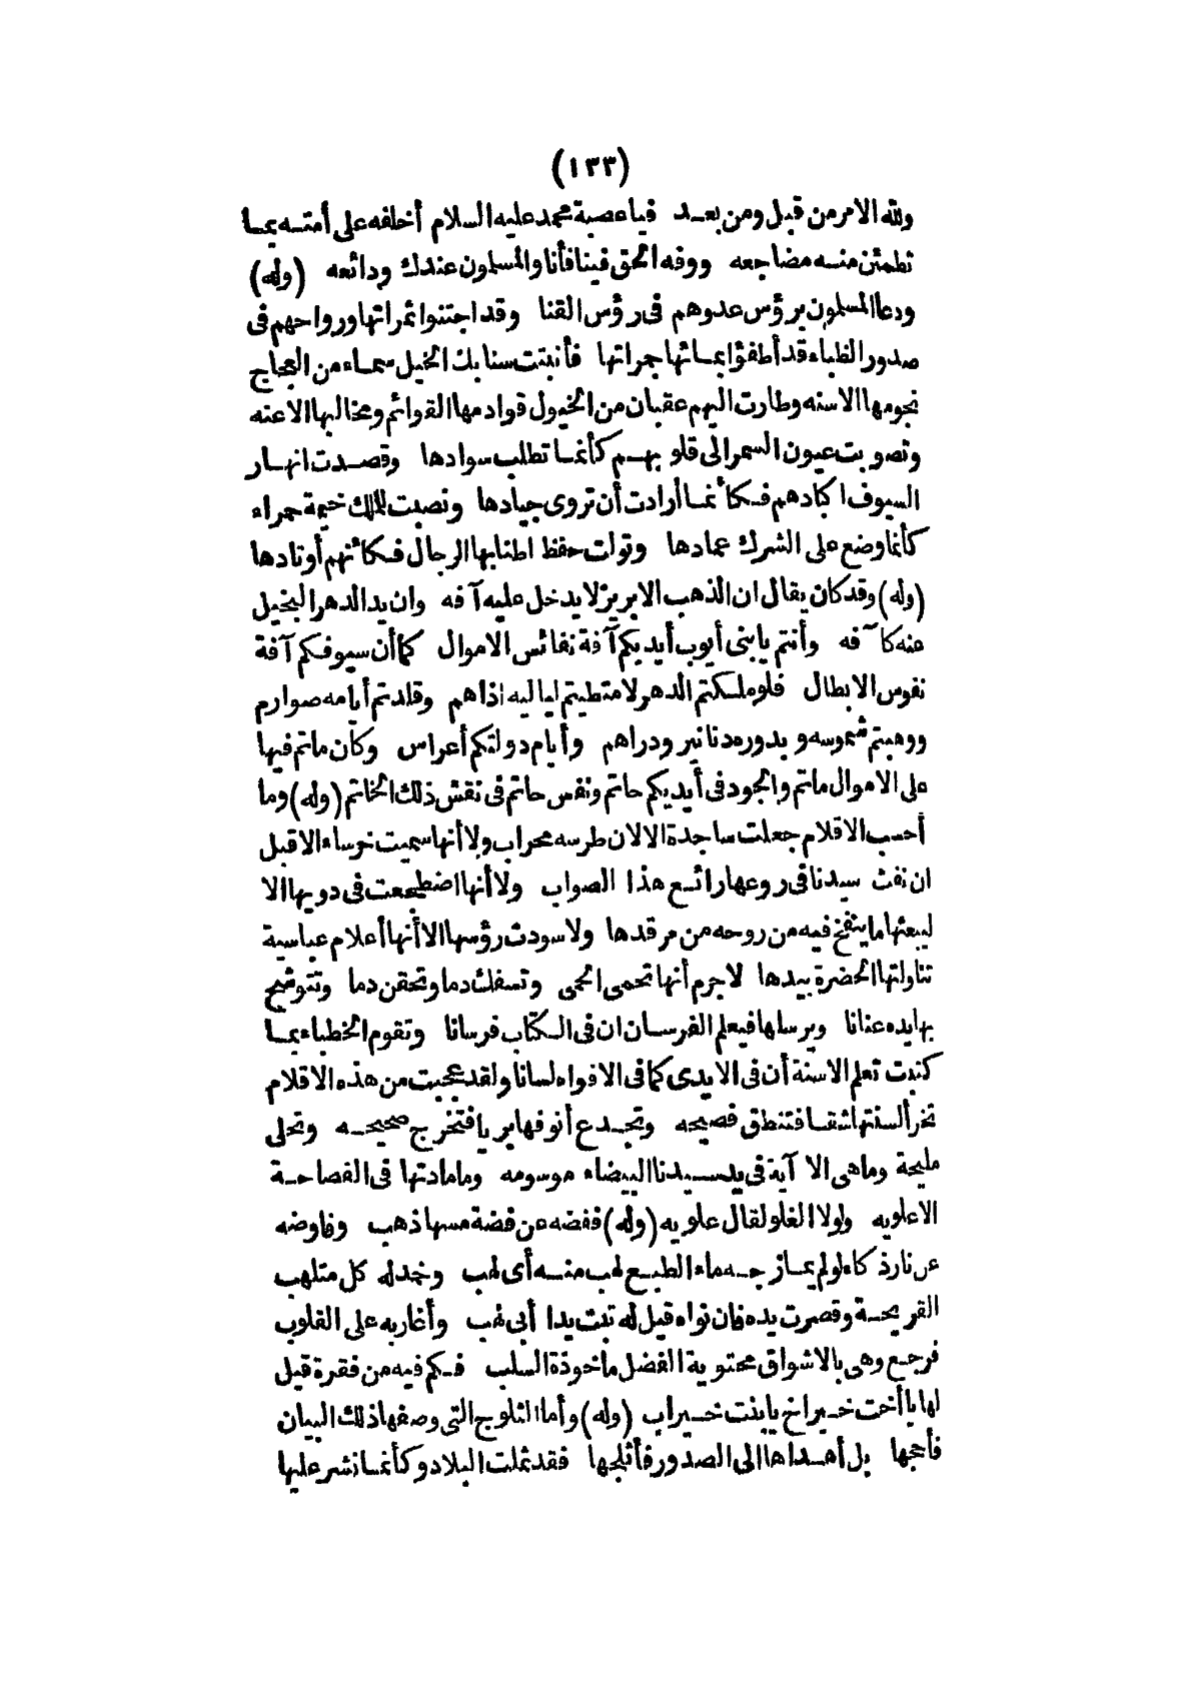 (١٣٣)
ولله الامر من قبل ومن بعد فيا عصبة محمد عليه السلام أخلفه على أمته بما
تطمئن منه مضاجعه ووفه الحق فينا فأنا والمسلمون عندك ودائعه (وله)
ودعا المسلمون برؤس عدوهم فى رؤس القنا وقد اجتنوا ثمراتها ورواحهم فى
صدور الظباء قد أطفؤا بمائها جمراتها فأنبتت سنابك الخيل سماء من العجاج
نجومها الاسنه وطارت اليهم عقبان من الخيول قوادمها القوائم ومخالبها الاعنه
وتصوبت عيون السمر الى قلوبهم كأنما تطلب سوادها وقصدت انهار
السيوف اكبادهم فكأنما أرادت أن تروى جيادها ونصبت للملك خيمة حمراء
كأنما وضع على الشرك عمادها وتوات حفظ اطنابها الرجال فكأنهم أوتادها
(وله) وقد كان يقال ان الذهب الابريز لا يدخل عليه آفه وان يد الدهر البخيل
عنه كآفه وأنتم يا بنى أيوب أيديكم آفة نفائس الاموال كما أن سيوفكم آفة
نفوس الابطال فلو ملكتم الدهر لامتطيتم لياليه اذاهم وقلدتم أيامه صوارم
ووهبتم شموسه وبدوره دنانير ودراهم وأيام دولتكم أعراس وكأن ماتم فيها
على الاموال ماتم والجود فى أيديكم حاتم ونفس حاتم فى نقش ذلك الخاتم (وله) وما
أحسب الاقلام جعلت ساجدة الا لان طرسه محراب ولا أنها سميت خرساء الا قبل
ان نفث سيدنا فى روعها رائع هذا الصواب ولا أنها اضطجعت فى دويها الا
ليبعثها ما ينفخ فيه من روحه من مرقدها ولا سودت رؤسها الا أنها أعلام عباسية
تناولتها الحضرة بيدها لا جرم أنها تحمى الحمى وتسفك دما وتحقن دما وتتوشح
بها يده عنانا ويرسلها فيعلم الفرسان ان فى الكتاب فرسانا وتقوم الخطباء بما
كتبت تعلم الاسنة أن فى الايدى كما فى الافواه لسانا ولقد عجبت من هذه الاقلام
تخرأ السنتها شقا فتنطق فصيحه وتجدع أنوفها بريا فتخرج صحيحه وتحلى
مليحة وما هى الا آية فى يد سيدنا البيضاء موسومه وما مادتها فى الفصاحة
الا علويه ولولا الغلو لقال علويه (وله) ففضه عن فضة مسها ذهب وفاوضه
عن نار ذكاء لو لم يمازجه ماء الطبع لهب منه أى لهب وخمد له كل متلهب
القريحة وقصرت يده فان نواه قيل له تبت يدا أبى لهب وأغار به على القلوب
فرجع وهى بالاشواق محتوية الفضل ماخوذة السلب فكم فيه من فقرة قيل
لها يا أخت خير اخ يا بنت خير اب (وله) وأما الثلوج التى وصفها ذلك البيان
فأججها بل أهداها الى الصدور فأثلجها فقد ثملت البلاد وكأنما نشر عليها